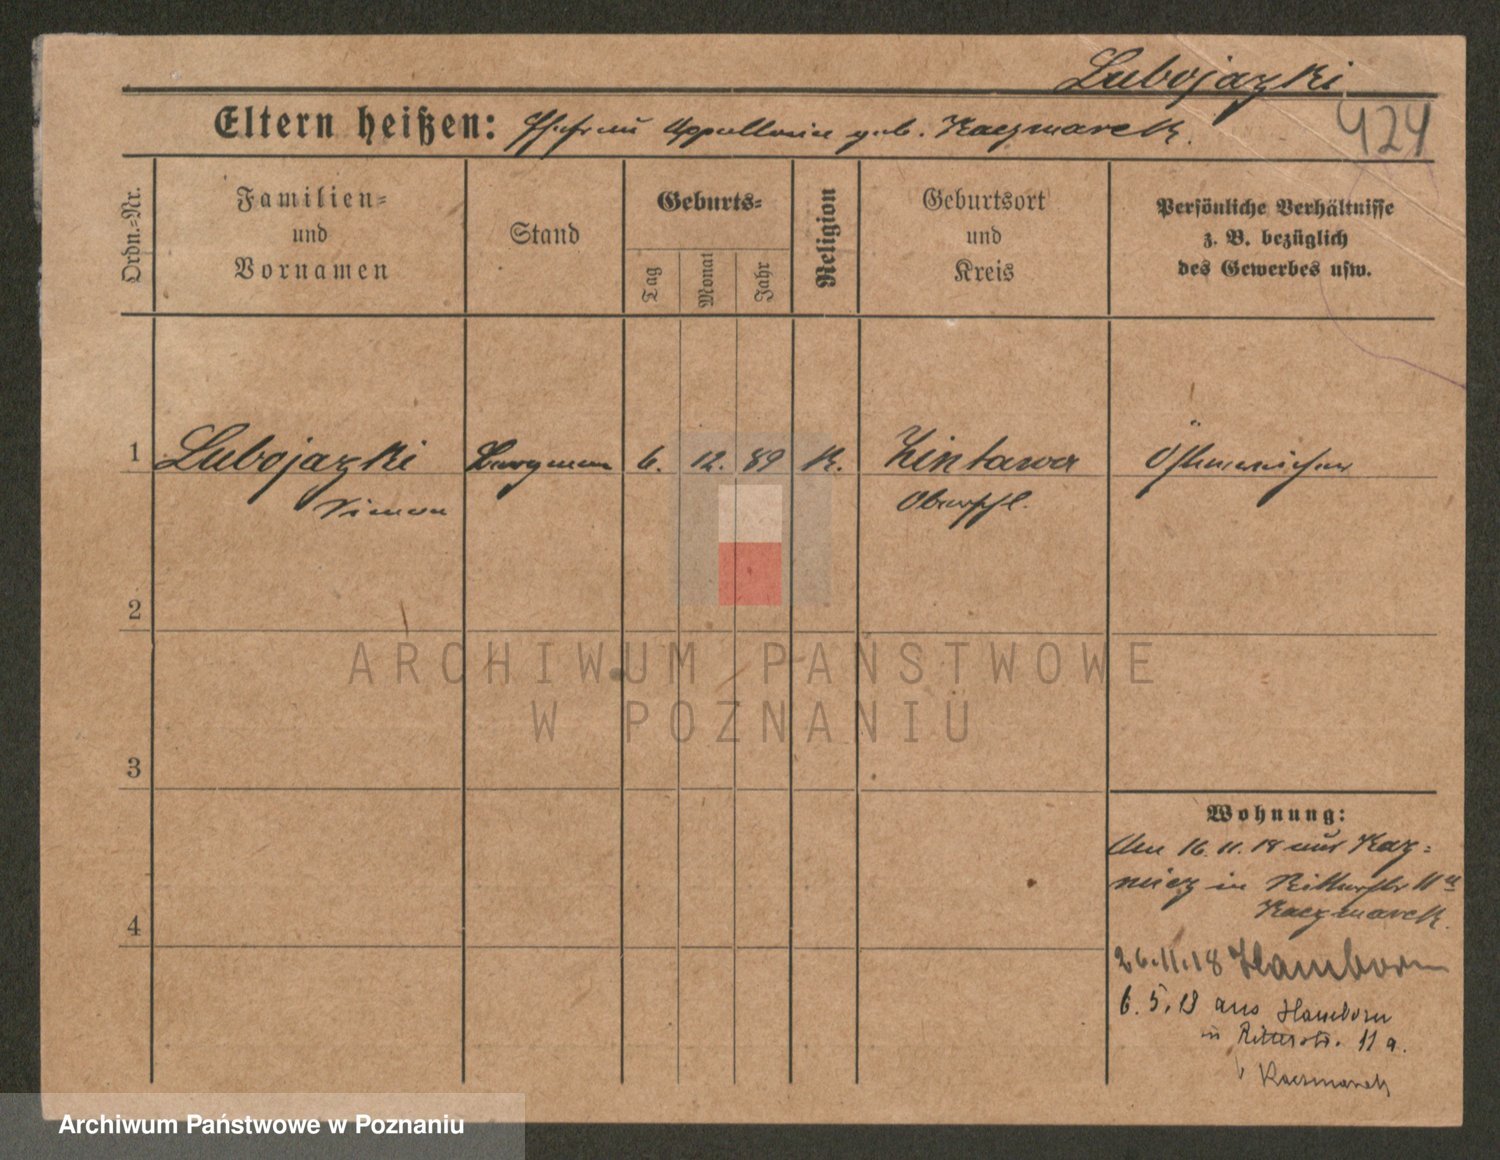 Lubojazki
424
Eltern heißen: Appollonia geb. Kaczmarek.
Ordn.-Nr.
Familien-
und
Vornamen
Stand
Geburts-
Tag
Monat
Jahr
Religion
Geburtsort
und
Kreis
Persönliche Verhältnisse
z. B. bezüglich
des Gewerbes usw.
1 Lubojazki Bergmann 6. 12. 89 K. Österreicher
Simon Oberschl.
2
ARCHIWUM PAŃSTWOWE
W POZNANIU
3
Wohnung:
Am 16.11.18 aus Kaz=
in Ritterstr 11a
Kaczmarek.
4
26.11.18 Hamborn
6.5.19 aus Hamborn
in Ritterstr. 11a.
b Kaczmarek
Archiwum Państwowe w Poznaniu